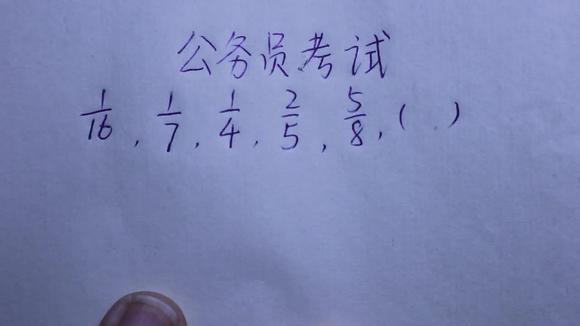 公务员考试
1/16, 1/7, 1/4, 2/5, 5/8, ( )